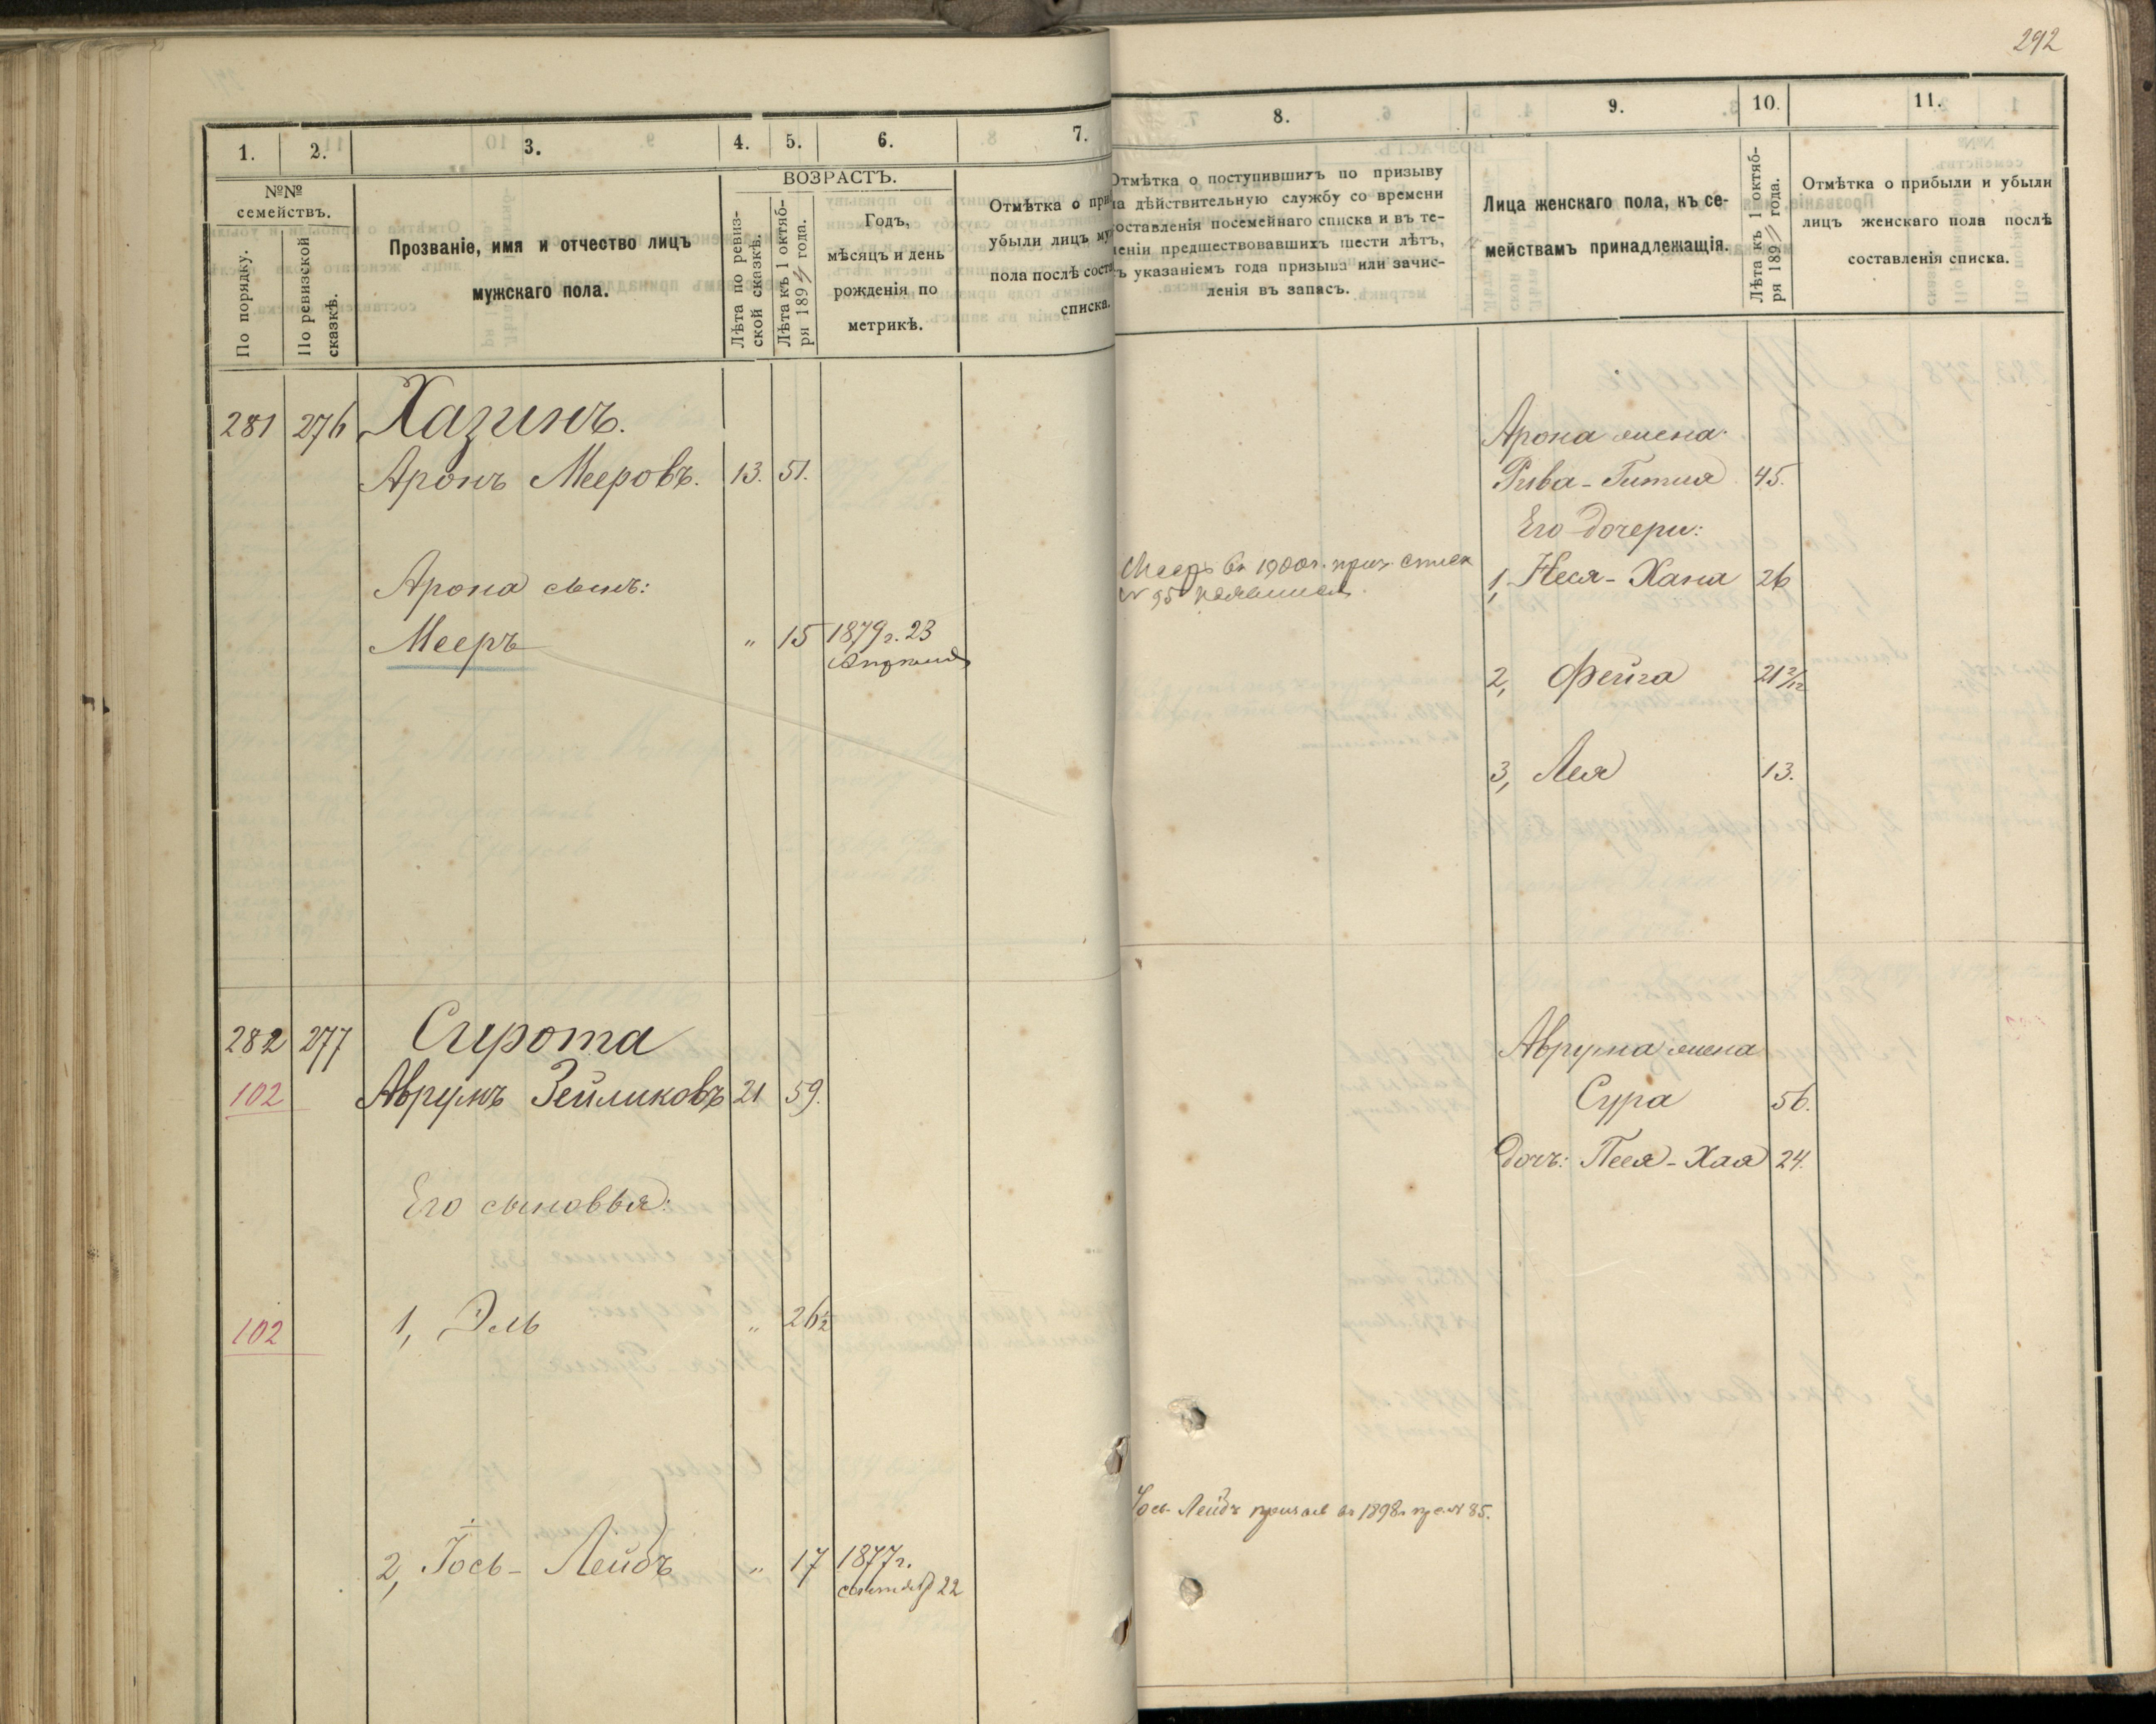 292
1. 2. 3. 4. 5. 6. 7.
№№ семействъ.
По порядку.
По ревизской сказкѣ.
Прозваніе, имя и отчество лицъ
мужскаго пола.
ВОЗРАСТЪ.
Лѣта по ревиз-
ской сказкѣ.
Лѣта къ 1 октяб-
ря 1894 года.
Годъ,
мѣсяцъ и день
рожденія по
метрикѣ.
Отмѣтка о при
убыли лицъ му
пола послѣ соста
списка.
281 276 Хазинъ.
Аронъ Мееровъ. 13. 51.
Арона сынъ:
Мееръ " 15 1879 г. 23
282 277 Сирота
102 Аврумъ Зейликовъ 21 59.
Его сыновья:
102 1, Эль " 26½
2, Іось-Лейбъ " 17 1877 г.
сентября 22
8. 9. 10. 11.
Отмѣтка о поступившихъ по призыву
на дѣйствительную службу со времени
составленія посемейнаго списка и въ те-
ченіи предшествовавшихъ шести лѣтъ,
съ указаніемъ года призыва или зачис-
ленія въ запасъ.
Лица женскаго пола, къ се-
мействамъ принадлежащія.
Лѣта къ 1 октяб-
ря 1894 года.
Отмѣтка о прибыли и убыли
лицъ женскаго пола послѣ
составленія списка.
Арона жена:
Рива-Гитля 45.
Его дочери:
Мееръ въ 1900 г. приз. списк
№ 95
1, Неся-Хана 26
2, Фейга 21 2/12
3, Лея 13.
Аврума жена
Сура 56.
дочь: Песя-Хая 24.
Іось-Лейбъ въ 1898 г. № 85.